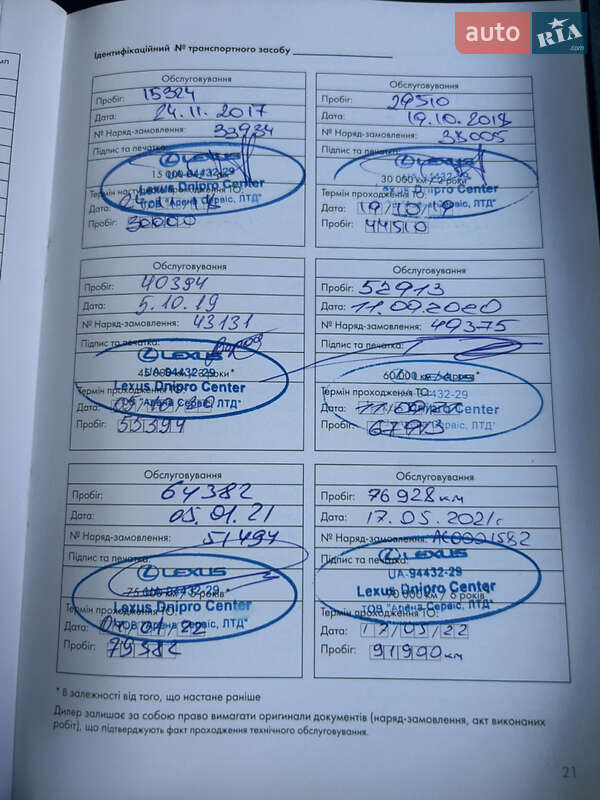 auto RIA.com
Ідентифікаційний № транспортного засобу
Обслуговування
Пробіг: 15324
Дата: 24.11.2017
№ Наряд-замовлення: 33934
Підпис та печатка:
LEXUS
15 000
UA-94432-29
Lexus Dnipro Center
Термін
ТОВ "Арена Сервіс, ЛТД"
Дата:
Пробіг: 30000
Обслуговування
Пробіг: 29510
Дата: 19.10.2018
№ Наряд-замовлення: 38005
Підпис та печатка:
LEXUS
30 000 км / 2 роки*
94432-29
Lexus Dnipro Center
Термін проходження ТО:
Сервіс, ЛТД"
Дата: 19/10/19
Пробіг: 44510
Обслуговування
Пробіг: 40394
Дата: 5.10.19
№ Наряд-замовлення: 43131
Підпис та печатка:
LEXUS
45 000 км / 3 роки*
UA-94432-29
Lexus Dnipro Center
Термін проходження ТО:
ТОВ "Арена Сервіс, ЛТД"
Дата: 05/10/20
Пробіг: 55394
Обслуговування
Пробіг: 52913
Дата: 11.09.2020
№ Наряд-замовлення: 49375
Підпис та печатка:
60 000 км / 4 роки*
Термін проходження ТО:
94432-29
Dnipro Center
Сервіс, ЛТД"
Дата: 11/09/21
Пробіг: 67913
Обслуговування
Пробіг: 64382
Дата: 05.01.21
№ Наряд-замовлення: 51494
Підпис та печатка:
LEXUS
75 000 км / 5 років*
UA-94432-29
Lexus Dnipro Center
Термін проходження ТО:
ТОВ "Арена Сервіс, ЛТД"
Дата: 04/01/22
Пробіг: 79382
Обслуговування
Пробіг: 76928 км
Дата: 17.05.2021г
№ Наряд-замовлення: АС0001582
Підпис та печатка:
LEXUS
UA-94432-29
90 000 км / 6 років*
Lexus Dnipro Center
Термін проходження ТО:
ТОВ "Арена Сервіс, ЛТД"
Дата: 17/05/22
Пробіг: 91990 км
* В залежності від того, що настане раніше
Дилер залишає за собою право вимагати оригинали документів (наряд-замовлення, акт виконаних
робіт), що підтверджують факт проходження технічного обслуговування.
21